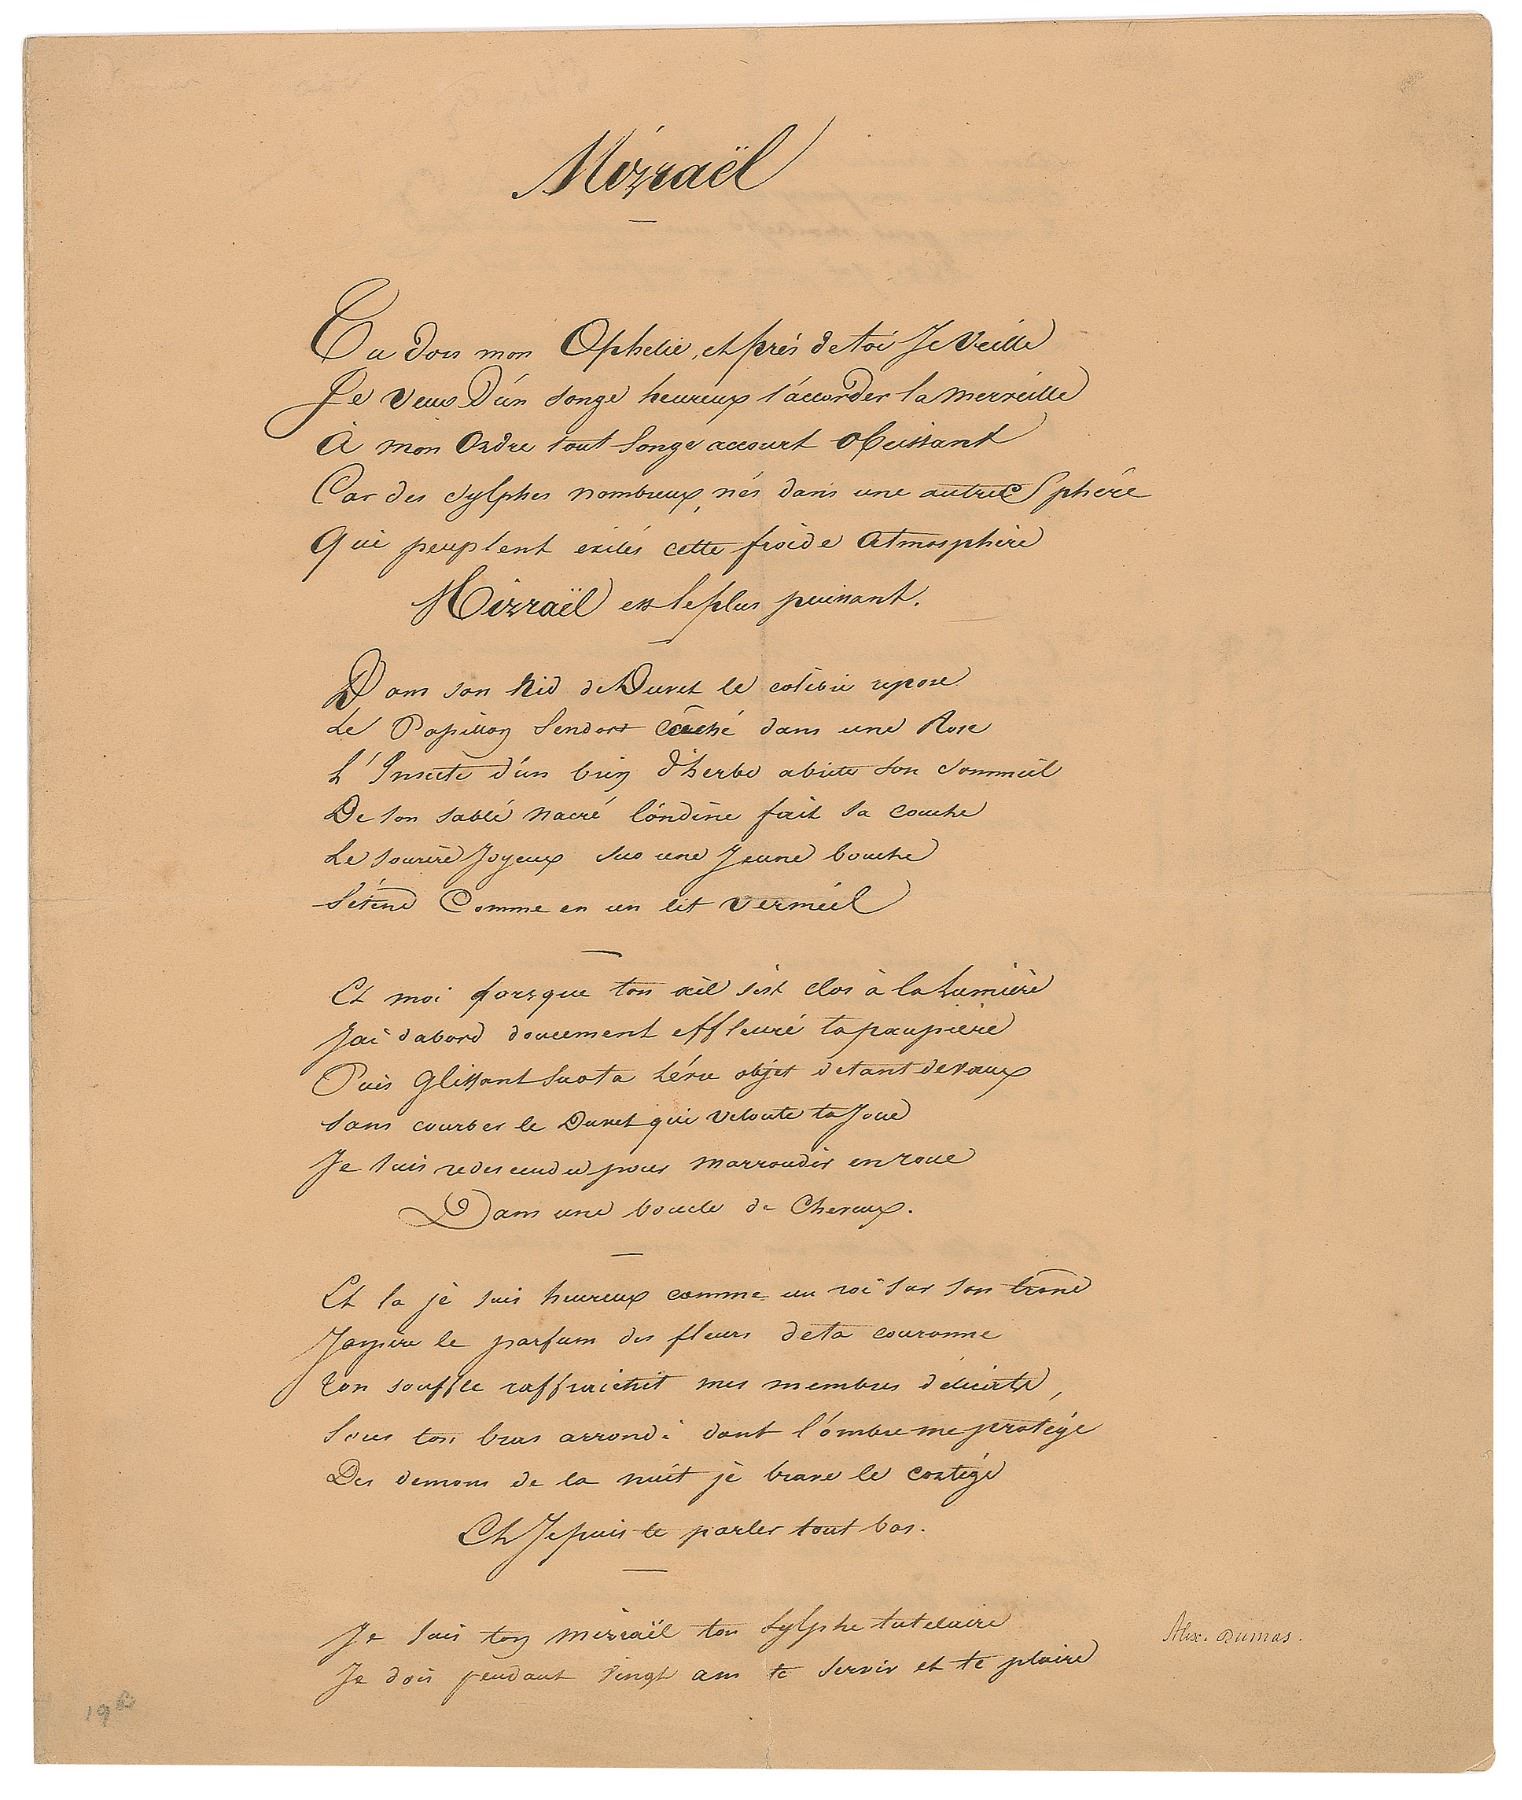 Mizraël
Tu dors mon Ophelie, et près de toi Je Veille
Je Veux D'un songe heureux t'accorder la merveille
A mon Ordre tout songe accourt obeissant
Car des sylphes nombreux, nés dans une autre Sphère
Qui peuplent exilés cette froide Atmosphère
Mizraël est le plus puissant.
Dans son Nid de Duvet le colibri repose
Le Papillon Sendort couché dans une Rose
L'Insecte d'un brin d'herbe abrite son sommeil
De son sable nacré l'ondine fait sa couche
Le sourire Joyeux sur une Jeune bouche
S'étend Comme en un lit vermeil
Et moi lorsque ton œil s'est clos à la Lumière
J'ai dabord doucement effleuré ta paupière
Puis Glissant sur ta Lévre objet de tant de vœux
Sans courber le Duvet qui veloute ta Joue
Je suis redescendu pour marrondir en roue
Dans une boucle de Cheveux.
Et la je suis heureux comme un roi sur son trone
Jaspire le parfum des fleurs de ta couronne
Ton souffle raffraichit mes membres délicats,
Sous ton bras arrondi dont l'ombre me protége
Des demons de la nuit je brave le cortége
Et Je puis te parler tout bas.
Je suis ton mizraël ton sylphe tutelaire
Je dois pendant vingt ans te servir et te plaire
Alex. Dumas.